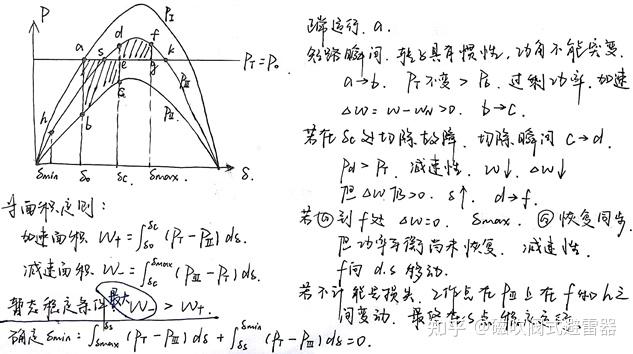 P
PI
d
f
a
s
k
PT=P0
e
g
PIII
c
h
b
PII
δmin
δ0
δc
δmax
δ.
等面积定则:
加速面积 W+ = ∫δ0δc (PT-PII) dδ.
减速面积 W- = ∫δcδmax (PIII-PT) dδ.
暂态稳定条件 最大 W- > W+.
确定 δmin: ∫δmaxδs (PT-PIII) dδ + ∫δsδmin (PT-PIII) dδ=0.
正常运行. a.
短路瞬间. 转子具有惯性, 功角不能突变.
a→b. PT不变 > PE. 过剩功率. 加速
Δω = ω-ωN >0. b→c.
若在 δc 处切除故障. 切除瞬间 c→d.
Pd > PT. 减速性. ω↓. Δω↓
但 Δω 仍>0. δ↑. d→f.
若到 f 处 Δω=0. δmax. 恢复同步.
但功率平衡尚未恢复. 减速性.
f向 d.s 移动.
若不计能量损失. 工作点在PIII上在 f 和 h 之
间变动. 最终在 s 点稳定运行.
知乎 @磁吹阀式避雷器